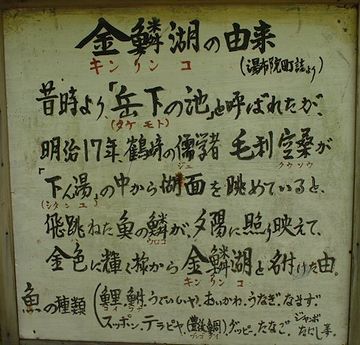 金鱗湖の由来
キンリンコ
(湯布院町誌より)
昔時より、「岳下の池」と呼ばれたが、
(タケモト)
明治17年、鶴崎の儒学者 毛利空桑が
ジュ クウソウ
「下ん湯」の中から湖面を眺めていると、
(シタンユ)
飛跳ねた魚の鱗が、夕陽に照り映えて、
ウロコ
金色に輝く様から金鱗湖と名付けた由。
キンリンコ
魚の種類
(鯉 鮒 うぐい(いや)、おいかわ、うなぎ、なまず
コイ フナ
スッポン、テラピヤ、(豊後鯛) グッピー、たなご、ジャンボたにし 等
ブンゴダイ